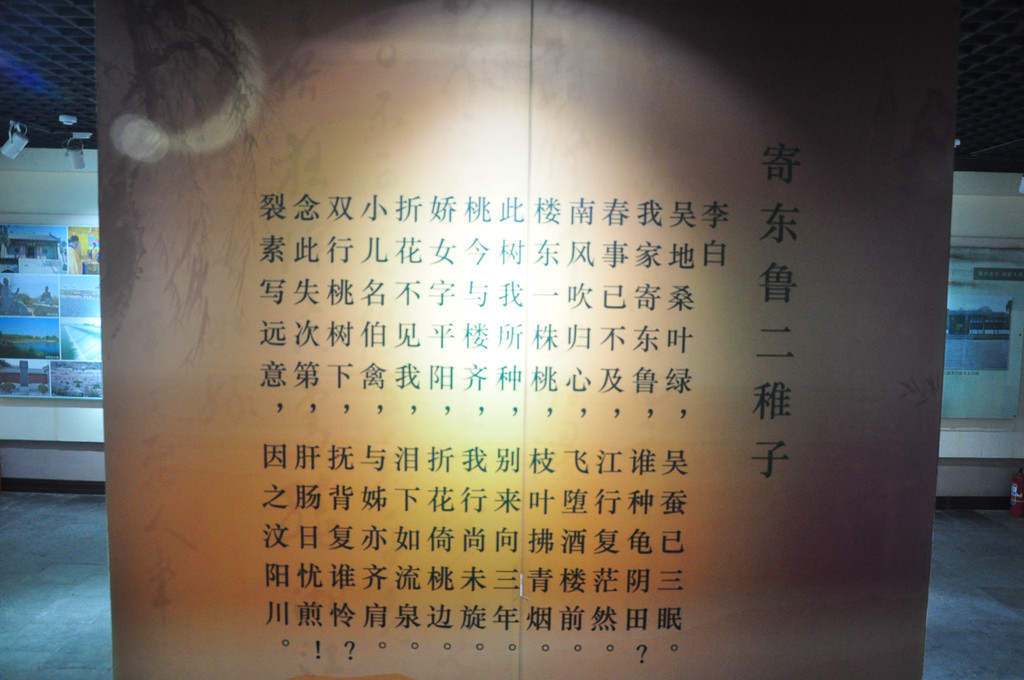 寄东鲁二稚子
李白
吴地桑叶绿，吴蚕已三眠。
我家寄东鲁，谁种龟阴田？
春事已不及，江行复茫然。
南风吹归心，飞堕酒楼前。
楼东一株桃，枝叶拂青烟。
此树我所种，别来向三年。
桃今与楼齐，我行尚未旋。
娇女字平阳，折花倚桃边。
折花不见我，泪下如流泉。
小儿名伯禽，与姊亦齐肩。
双行桃树下，抚背复谁怜？
念此失次第，肝肠日忧煎！
裂素写远意，因之汶阳川。